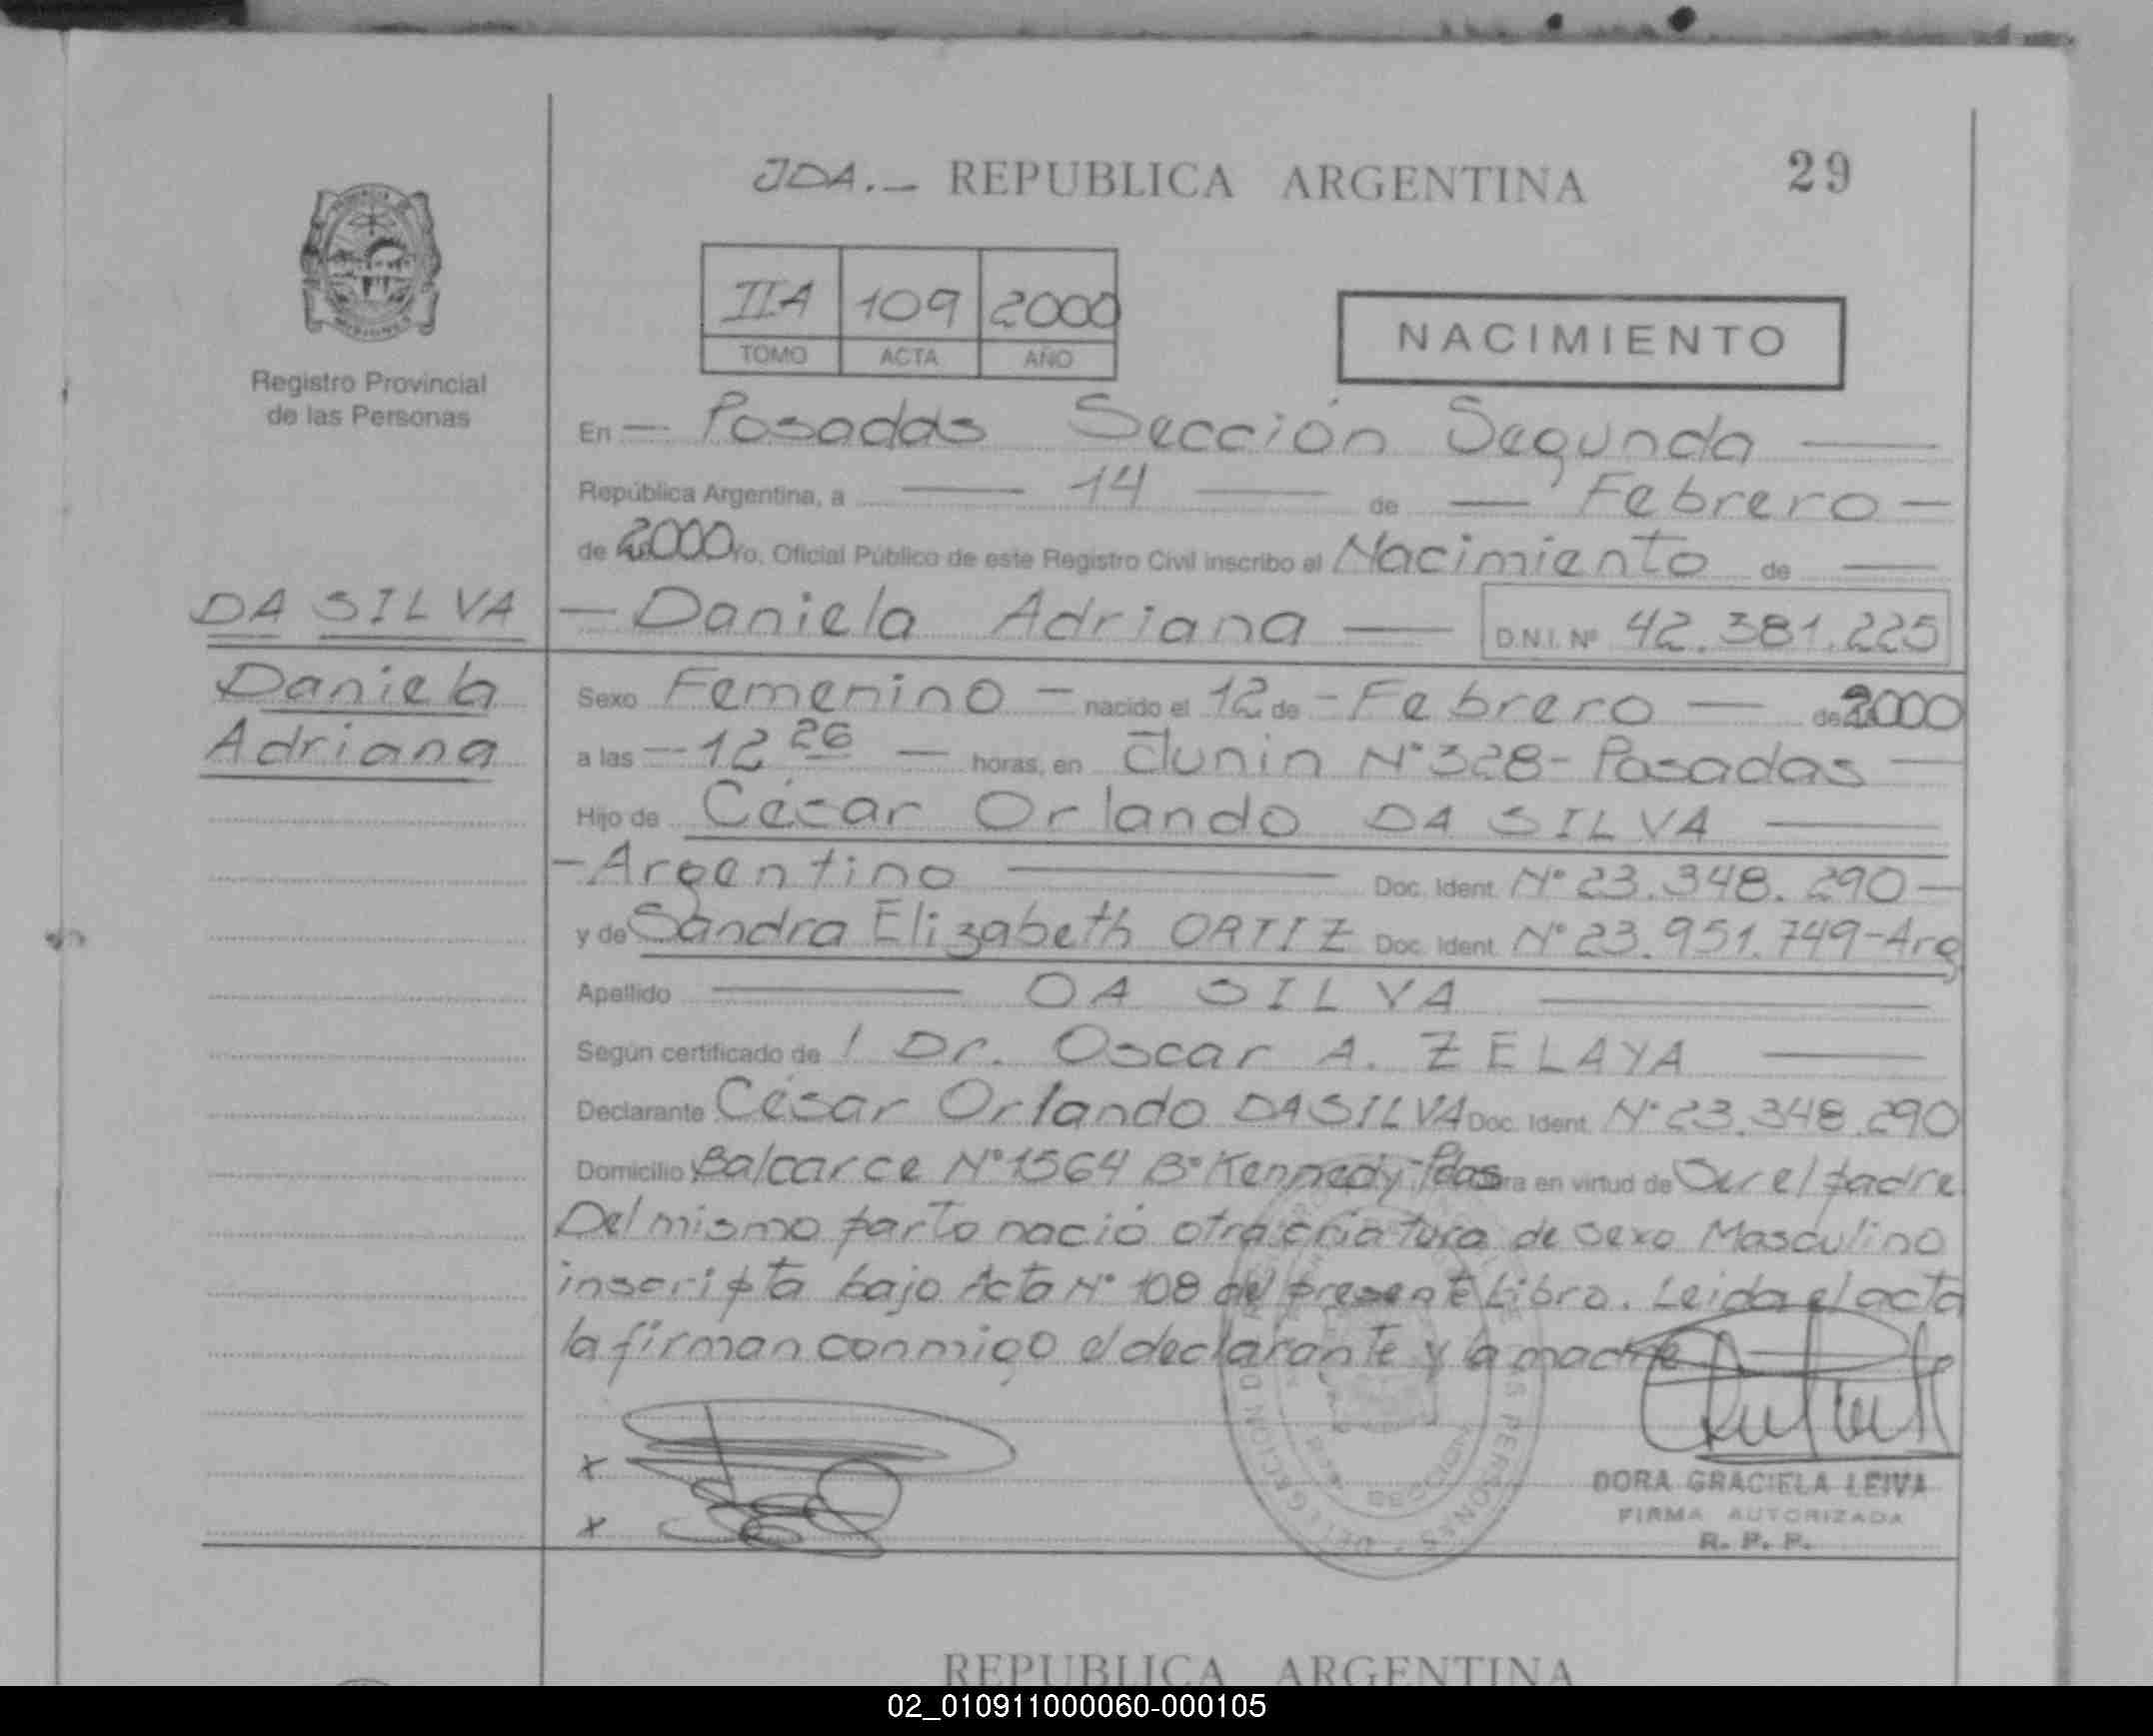 JDA.— REPUBLICA ARGENTINA 29
IIA 109 2000
TOMO ACTA AÑO
NACIMIENTO
Registro Provincial
de las Personas
En — Posadas Sección Segunda —
República Argentina, a — 14 — de — Febrero —
de 2000 Yo, Oficial Público de este Registro Civil inscribo el Nacimiento de —
DA SILVA — Daniela Adriana — D.N.I. Nº 42.381.225
Daniela Sexo Femenino — nacido el 12 de - Febrero — de 2000
Adriana a las — 12 26 — horas, en Junin N° 328 - Posadas —
Hijo de César Orlando DA SILVA —
- Argentino — Doc. Ident. N° 23.348.290 —
y de Sandra Elizabeth ORTIZ Doc. Ident. N° 23.951.749 - Arg
Apellido — DA SILVA —
Según certificado de l Dr. Oscar A. ZELAYA —
Declarante César Orlando DA SILVA Doc. Ident. N° 23.348.290
Domicilio Balcarce N° 1564 B° Kennedy - Pdas en virtud de Ser el padre
Del mismo parto nació otra criatura de sexo Masculino
inscripta bajo Acta N° 108 del presente Libro. Leida el acta
la firman conmigo el declarante y la madre
x
x
DORA GRACIELA LEIVA
FIRMA AUTORIZADA
R. P. P.
REPUBLICA ARGENTINA
02_010911000060-000105